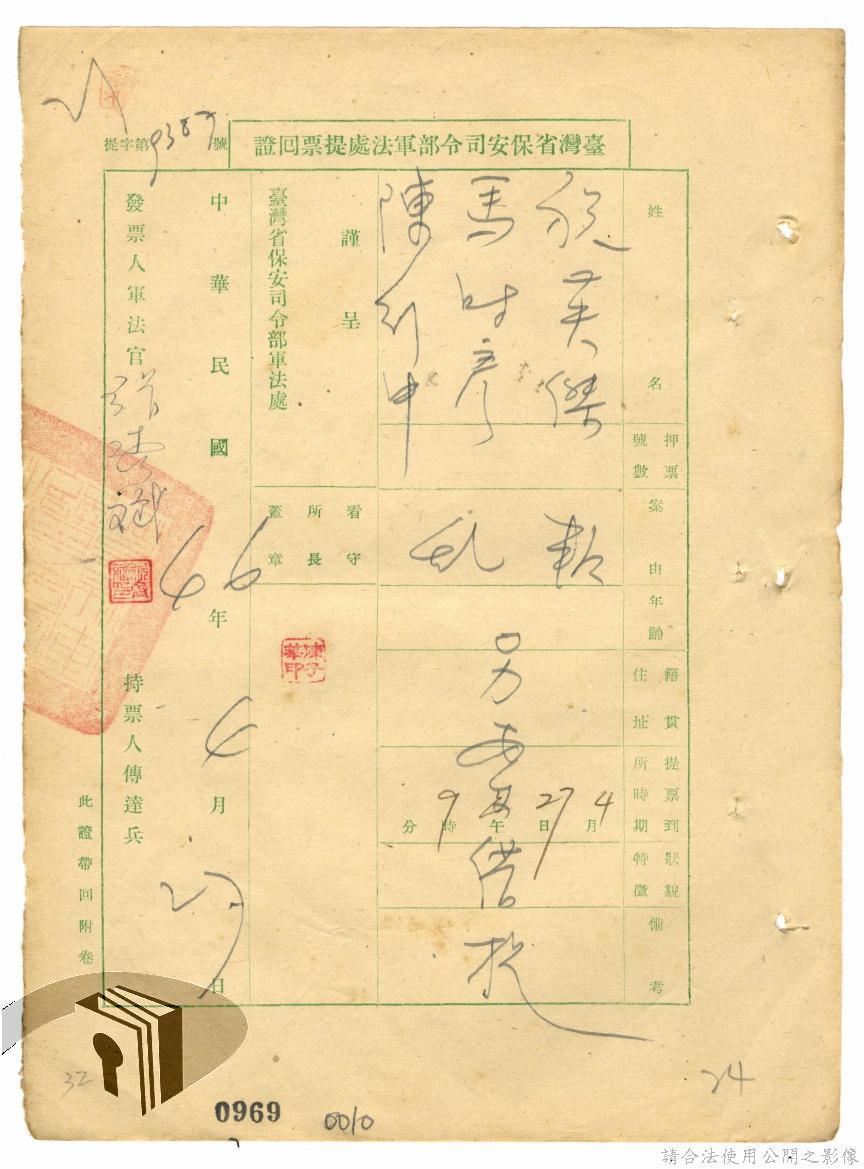 臺灣省保安司令部軍法處提票回證
提字第9387號
姓名
馬時彥
陳列中
押票號數
案由
叛乱
年齡
籍貫住址
提票到所時期
4月27日午9時分
狀貌特徵
備考
謹呈
臺灣省保安司令部軍法處
看守所長蓋章
陳子華印
中華民國46年4月27日
發票人軍法官
持票人傳達兵
此證帶回附卷
32
24
0969
0010
請合法使用公開之影像